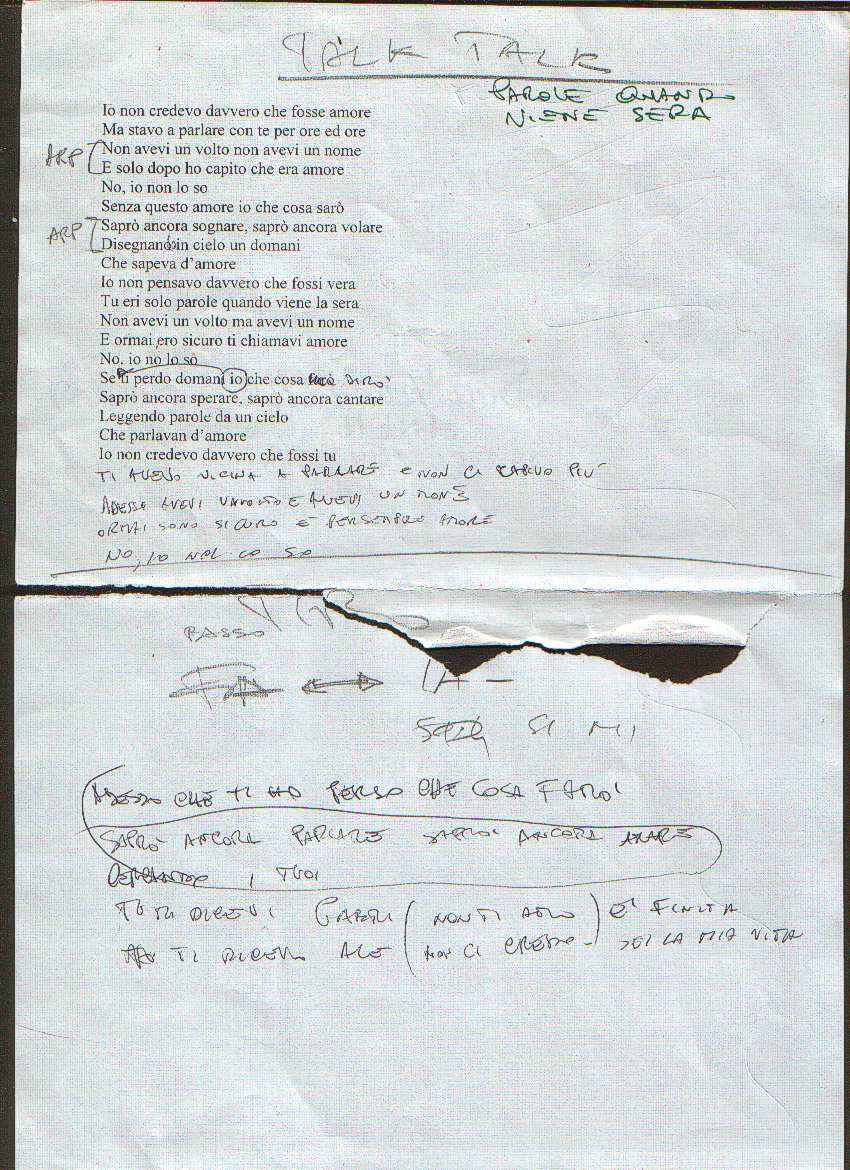 TALK TALK
PAROLE QUANDO
VIENE SERA
Io non credevo davvero che fosse amore
Ma stavo a parlare con te per ore ed ore
ARP
Non avevi un volto non avevi un nome
E solo dopo ho capito che era amore
No, io non lo so
Senza questo amore io che cosa sarò
ARP
Saprò ancora sognare, saprò ancora volare
Disegnando in cielo un domani
Che sapeva d'amore
Io non pensavo davvero che fossi vera
Tu eri solo parole quando viene la sera
Non avevi un volto ma avevi un nome
E ormai ero sicuro ti chiamavi amore
No, io no lo so
Se ti perdo domani io che cosa DIRO'
Saprò ancora sperare, saprò ancora cantare
Leggendo parole da un cielo
Che parlavan d'amore
Io non credevo davvero che fossi tu
TI AVEVO VICINA A PARLARE E NON CI CAPIVO PIU'
ADESSO AVEVI UN VOLTO E AVEVI UN NOME
ORMAI SONO SICURO E' PER SEMPRE AMORE
NO, IO NON LO SO
BASSO
FA LA -
SI MI
ADESSO CHE TI HO PERSO CHE COSA FARO'
SAPRO' ANCORA PARLARE SAPRO' ANCORA AMARE
I TUOI
TU MI DICEVI GABRI (NON TI AMO) E' FINITA
TI DICEVO ALE (NON CI CREDO - SEI LA MIA VITA